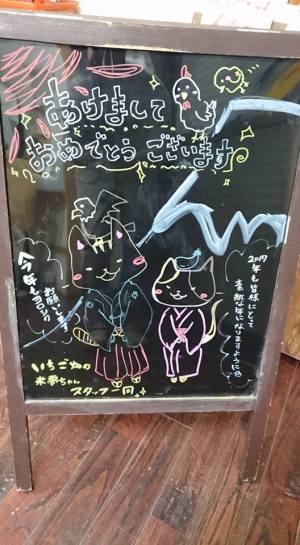 あけまして
おめでとうございます
2017
年も皆様にとって
素敵な年になりますように
今年もヨロシク
お願いします
いちご畑の
米夢ちゃん
スタッフ一同